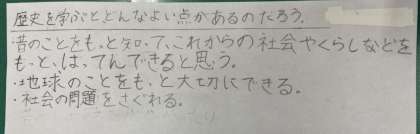 歴史を学ぶとどんなよい点があるのだろう。
・昔のことをもっと知って、これからの社会やくらしなどを
もっと、はってんできると思う。
・地球のことをもっと大切にできる。
・社会の問題をさぐれる。